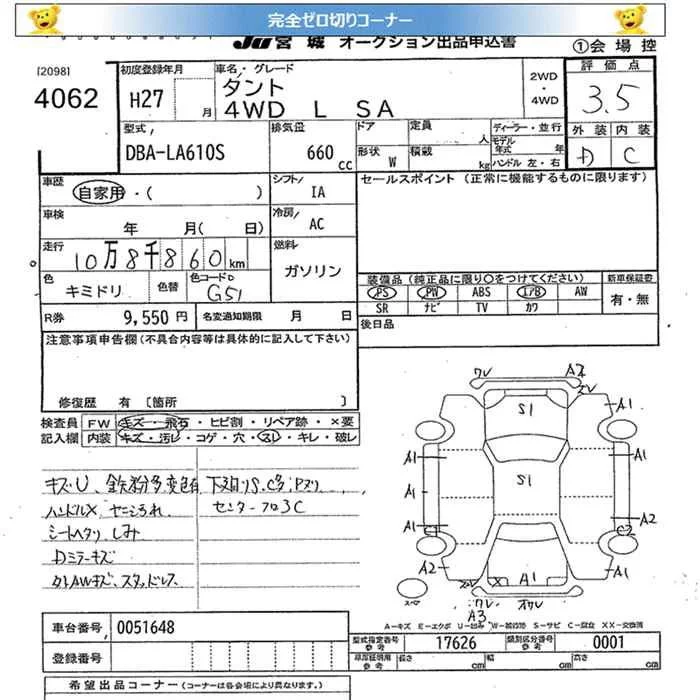 完全ゼロ切りコーナー
JU宮城 オークション出品申込書
①会場控
[2098]
4062
初度登録年月
H27 月
車名・グレード
タント
4WD L SA
2WD
・
4WD
評価点
3.5
外装 内装
D C
型式
DBA-LA610S
排気量
660 cc
ドア
形状 W
定員 人
積載 kg
ディーラー・並行
モデル年式 年
ハンドル 左・右
車歴
自家用・( )
シフト
IA
セールスポイント (正常に機能するものに限ります)
車検
年 月( 日)
冷房
AC
走行
10万8千860km
燃料
ガソリン
色
キミドリ
色替
色コードD
G51
装備品 (純正品に限り○をつけてください)
PS PW ABS I/B AW
SR ナビ TV カワ
新車保証書
有・無
R券 9,550 円
名変通知期限 月 日
後日品
注意事項申告欄(不具合内容等は具体的に記入して下さい)
修復歴 有 [箇所 ]
検査員記入欄
FW キズ・飛石・ヒビ割・リペア跡・×要
内装 キズ・汚レ・コゲ・穴・スレ・キレ・破レ
キズU、鉄粉多変色有 下廻りS.C多.Pヌリ
ハンドルX ヤニよごれ センターフロ3C
シートヘタリ しみ
Dミラーキズ
社外AWキズ、スタッドレス
ワレ A2
S1
A1
A1 A1
S1
A1
A2
C1 C2
A2 A1
X A1
ワレ
A3
スペア
A-キズ E-エクボ U-凹み W-補修跡 S-サビ C-腐食 XX-交換済
車台番号 0051648
登録番号
型式指定番号 参考 17626
類別区分番号 参考 0001
車庫証明用 参考 長さ cm 幅 cm 高さ cm
希望出品コーナー (コーナーは各会場により異なります。)